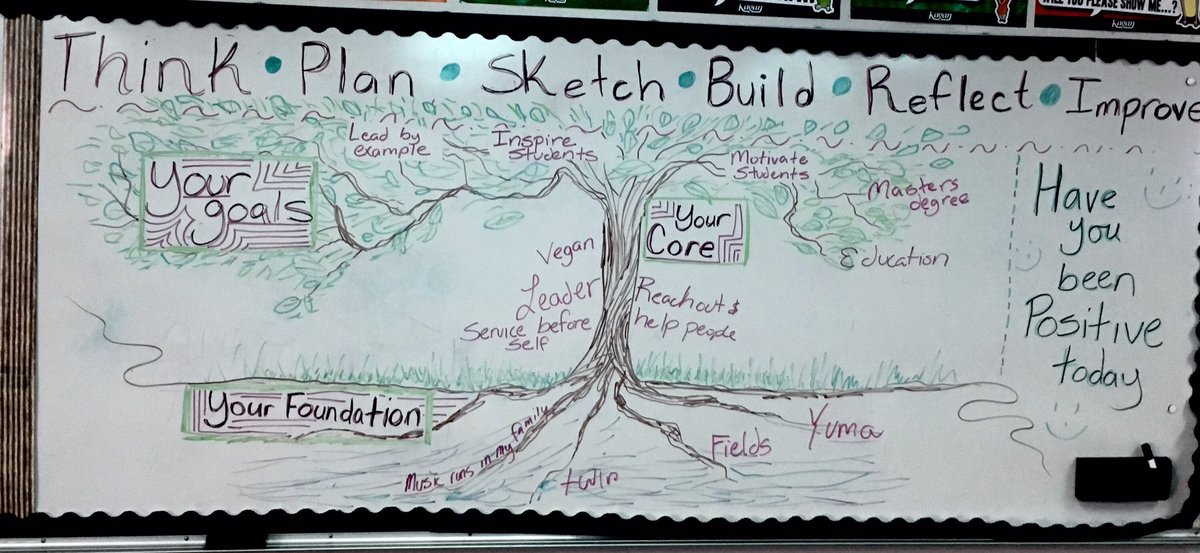 WILL YOU PLEASE SHOW ME...?
Kagan
Kagan
Kagan
Think • Plan • Sketch • Build • Reflect • Improve
Your
goals
Lead by
example
Inspire
Students
Motivate
Students
Masters
degree
Education
Your
Core
Vegan
Leader
Service before
self
Reach out &
help people
Your Foundation
Music runs in my family
twin
Fields
Yuma
Have
you
been
Positive
today